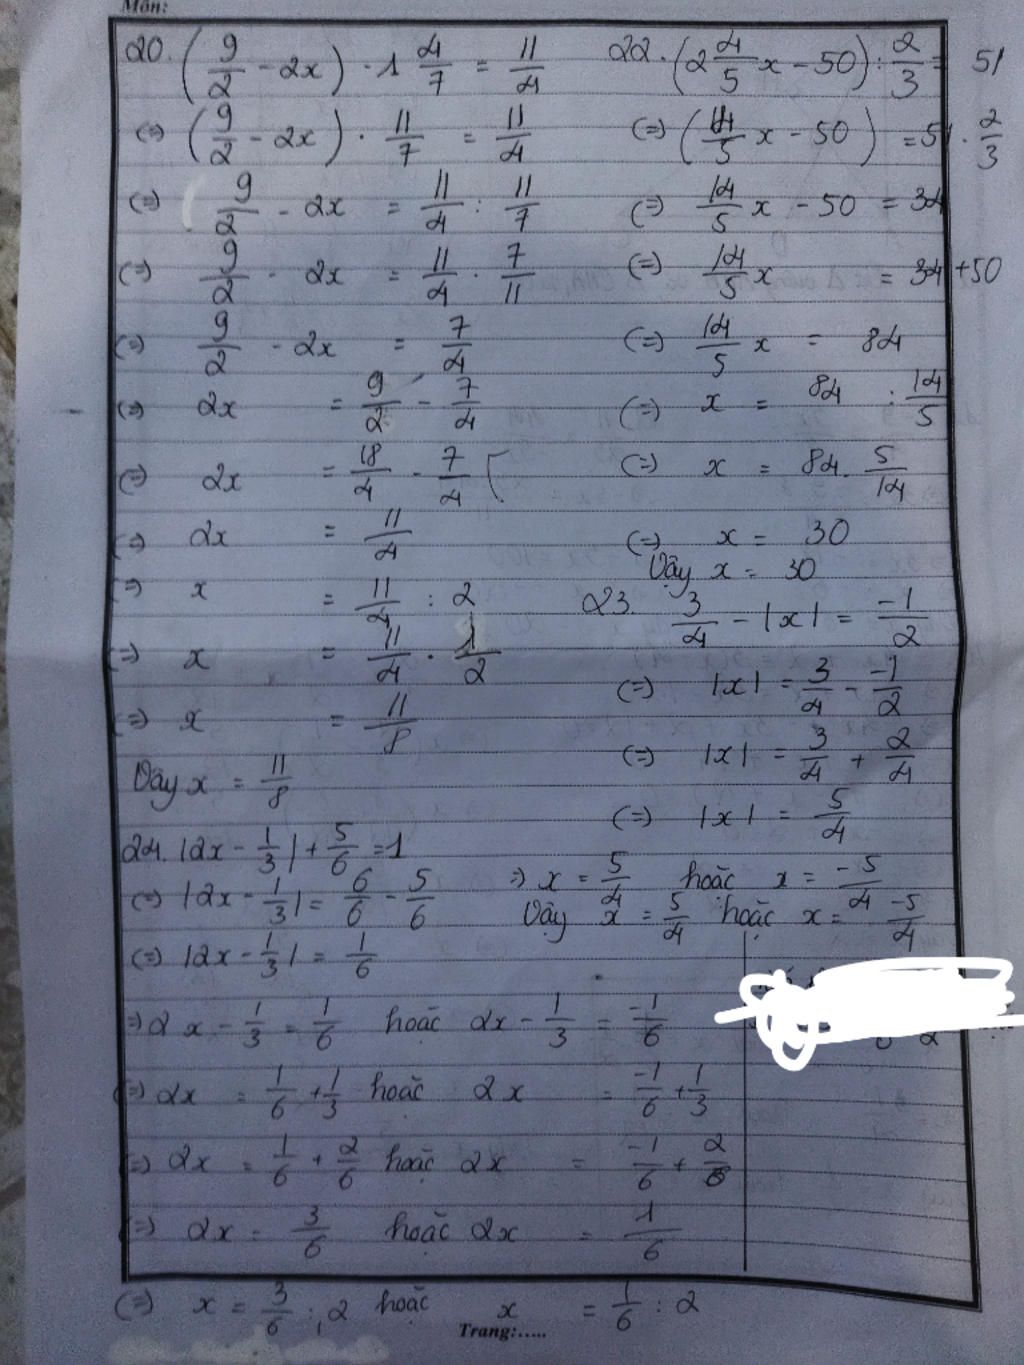 Môn:
20. (9/2 - 2x) · 1 4/7 = 11/4
(=) (9/2 - 2x) · 11/7 = 11/4
(=) 9/2 - 2x = 11/4 : 11/7
(=) 9/2 - 2x = 11/4 · 7/11
(=) 9/2 - 2x = 7/4
(=) 2x = 9/2 - 7/4
(=) 2x = 18/4 - 7/4
(=) 2x = 11/4
=) x = 11/4 : 2
=) x = 11/4 · 1/2
=) x = 11/8
Vậy x = 11/8
22. (2 4/5 x - 50) : 2/3 = 51
(=) (14/5 x - 50) = 51 · 2/3
(=) 14/5 x - 50 = 34
(=) 14/5 x = 34 + 50
(=) 14/5 x = 84
(=) x = 84 : 14/5
(=) x = 84 . 5/14
(=) x = 30
Vậy x = 30
23. 3/4 - |x| = -1/2
(=) |x| = 3/4 - -1/2
(=) |x| = 3/4 + 2/4
(=) |x| = 5/4
=) x = 5/4 hoặc x = -5/4
Vậy x = 5/4 hoặc x = -5/4
24. |2x - 1/3| + 5/6 = 1
(=) |2x - 1/3| = 6/6 - 5/6
(=) |2x - 1/3| = 1/6
=) 2x - 1/3 = 1/6 hoặc 2x - 1/3 = -1/6
(=) 2x = 1/6 + 1/3 hoặc 2x = -1/6 + 1/3
=) 2x = 1/6 + 2/6 hoặc 2x = -1/6 + 2/6
(=) 2x = 3/6 hoặc 2x = 1/6
(=) x = 3/6 : 2 hoặc x = 1/6 : 2
Trang:.....